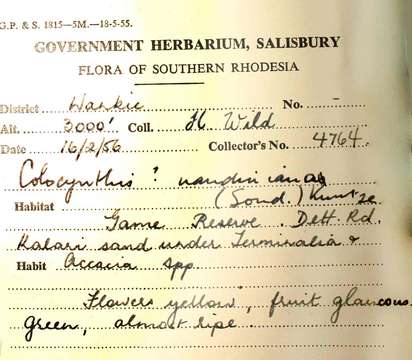 G.P. & S. 1815—5M.—18-5-55.
GOVERNMENT HERBARIUM, SALISBURY
FLORA OF SOUTHERN RHODESIA
District Wankie No. -
Alt. 3000' Coll. H Wild
Date 16/2/56 Collector's No. 4764.
Colocynthis ? naudiniana
(Sond.) Kuntze
Habitat
Game Reserve. Dett Rd.
Kalari sand under Terminalia &
Habit Accacia spp.
Flowers yellow, fruit glaucous
green, almost ripe.